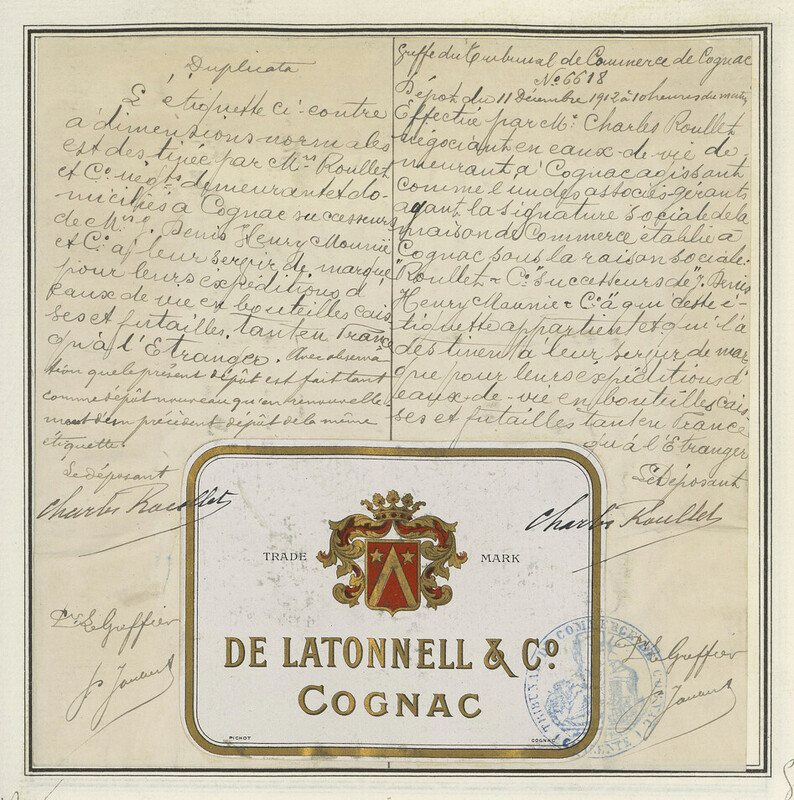 Duplicata
L'étiquette ci-contre
à dimensions normales
est destinée par Mrs Roullet
et Co négts demeurant et do-
miciliés à Cognac successeurs
de Mrs J. Denis Henry Mounié
et Co à leur servir de marque
pour leurs expéditions d'
eaux de vie en bouteilles cais
ses et futailles, tant en France
qu'à l'Etranger. Avec observa
tion que le présent dépôt est fait tant
comme dépôt nouveau qu'en renouvelle
ment d'un précédent dépôt de la même
étiquette
Le déposant
Charles Roullet
Pr Le Greffier
Greffe du Tribunal de Commerce de Cognac
No 6618
Dépot du 11 Décembre 1912 à 10 heures du matin
Effectué par Mr Charles Roullet
négociant en eaux-de-vie de-
meurant à Cognac agissant
comme l'un des associés-gérants
ayant la signature sociale de la
maison de Commerce établie à
Cognac sous la raison sociale:
"Roullet & Co" successeurs de "J. Denis
Henry Mounié & Co" à qui cette é-
tiquette appartient et qui l'a
destinent à leur servir de mar
que pour leurs expéditions d'
eaux-de-vie en bouteilles, cais
ses et futailles tant en France
qu'à l'Etranger
Le Déposant
Charles Roullet
Pr Le Greffier
TRADE MARK
DE LATONNELL & Co
COGNAC
PICHOT COGNAC
TRIBUNAL DE COMMERCE DE COGNAC